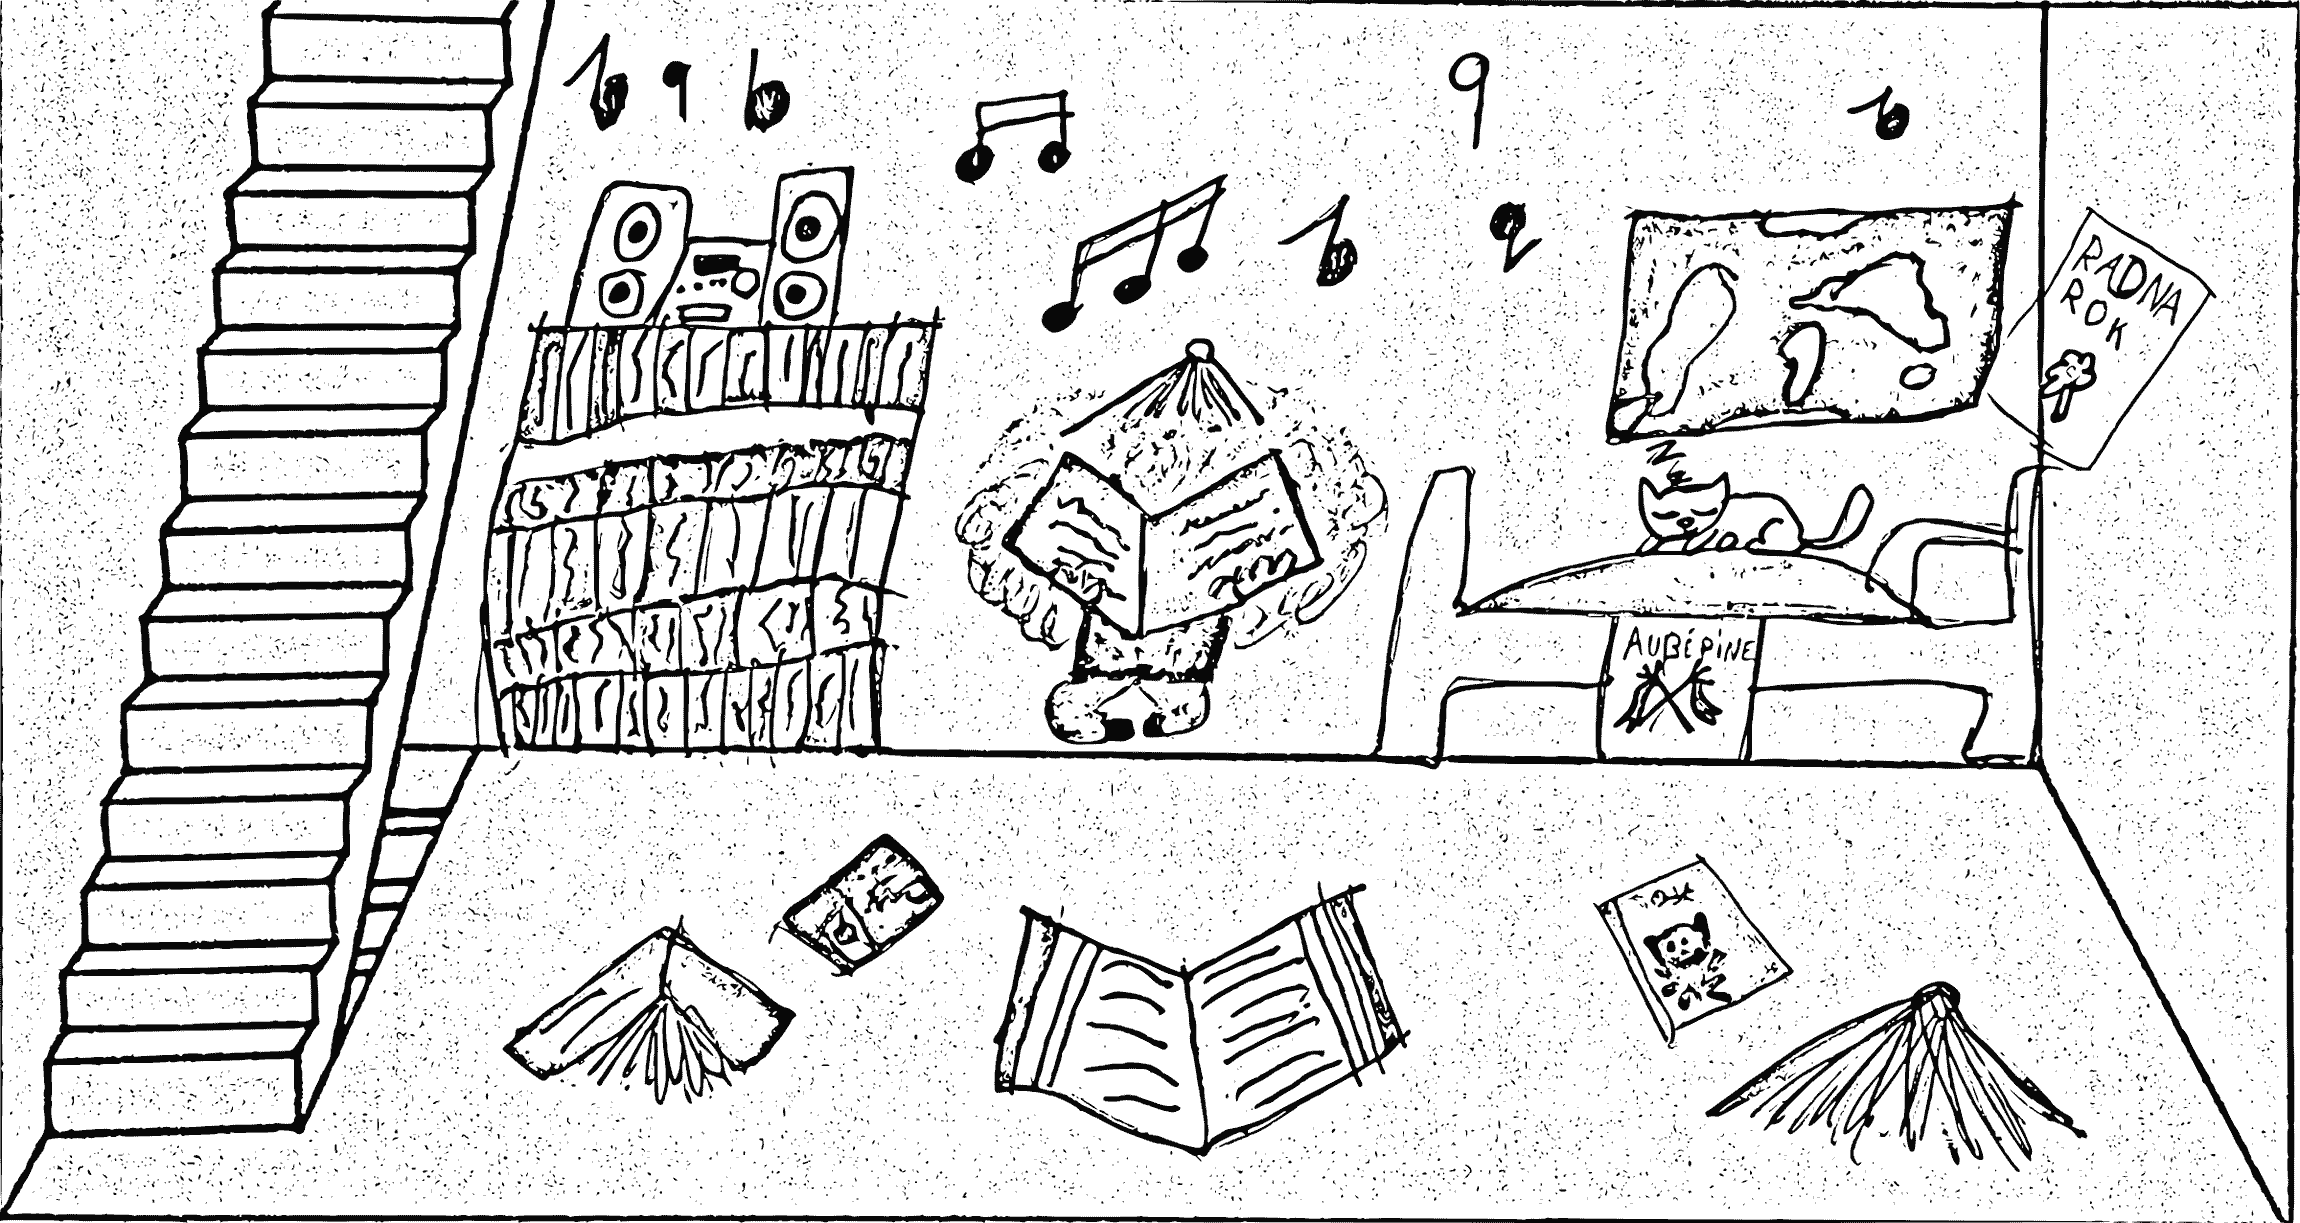 RADNA
ROK
AUBÉPINE